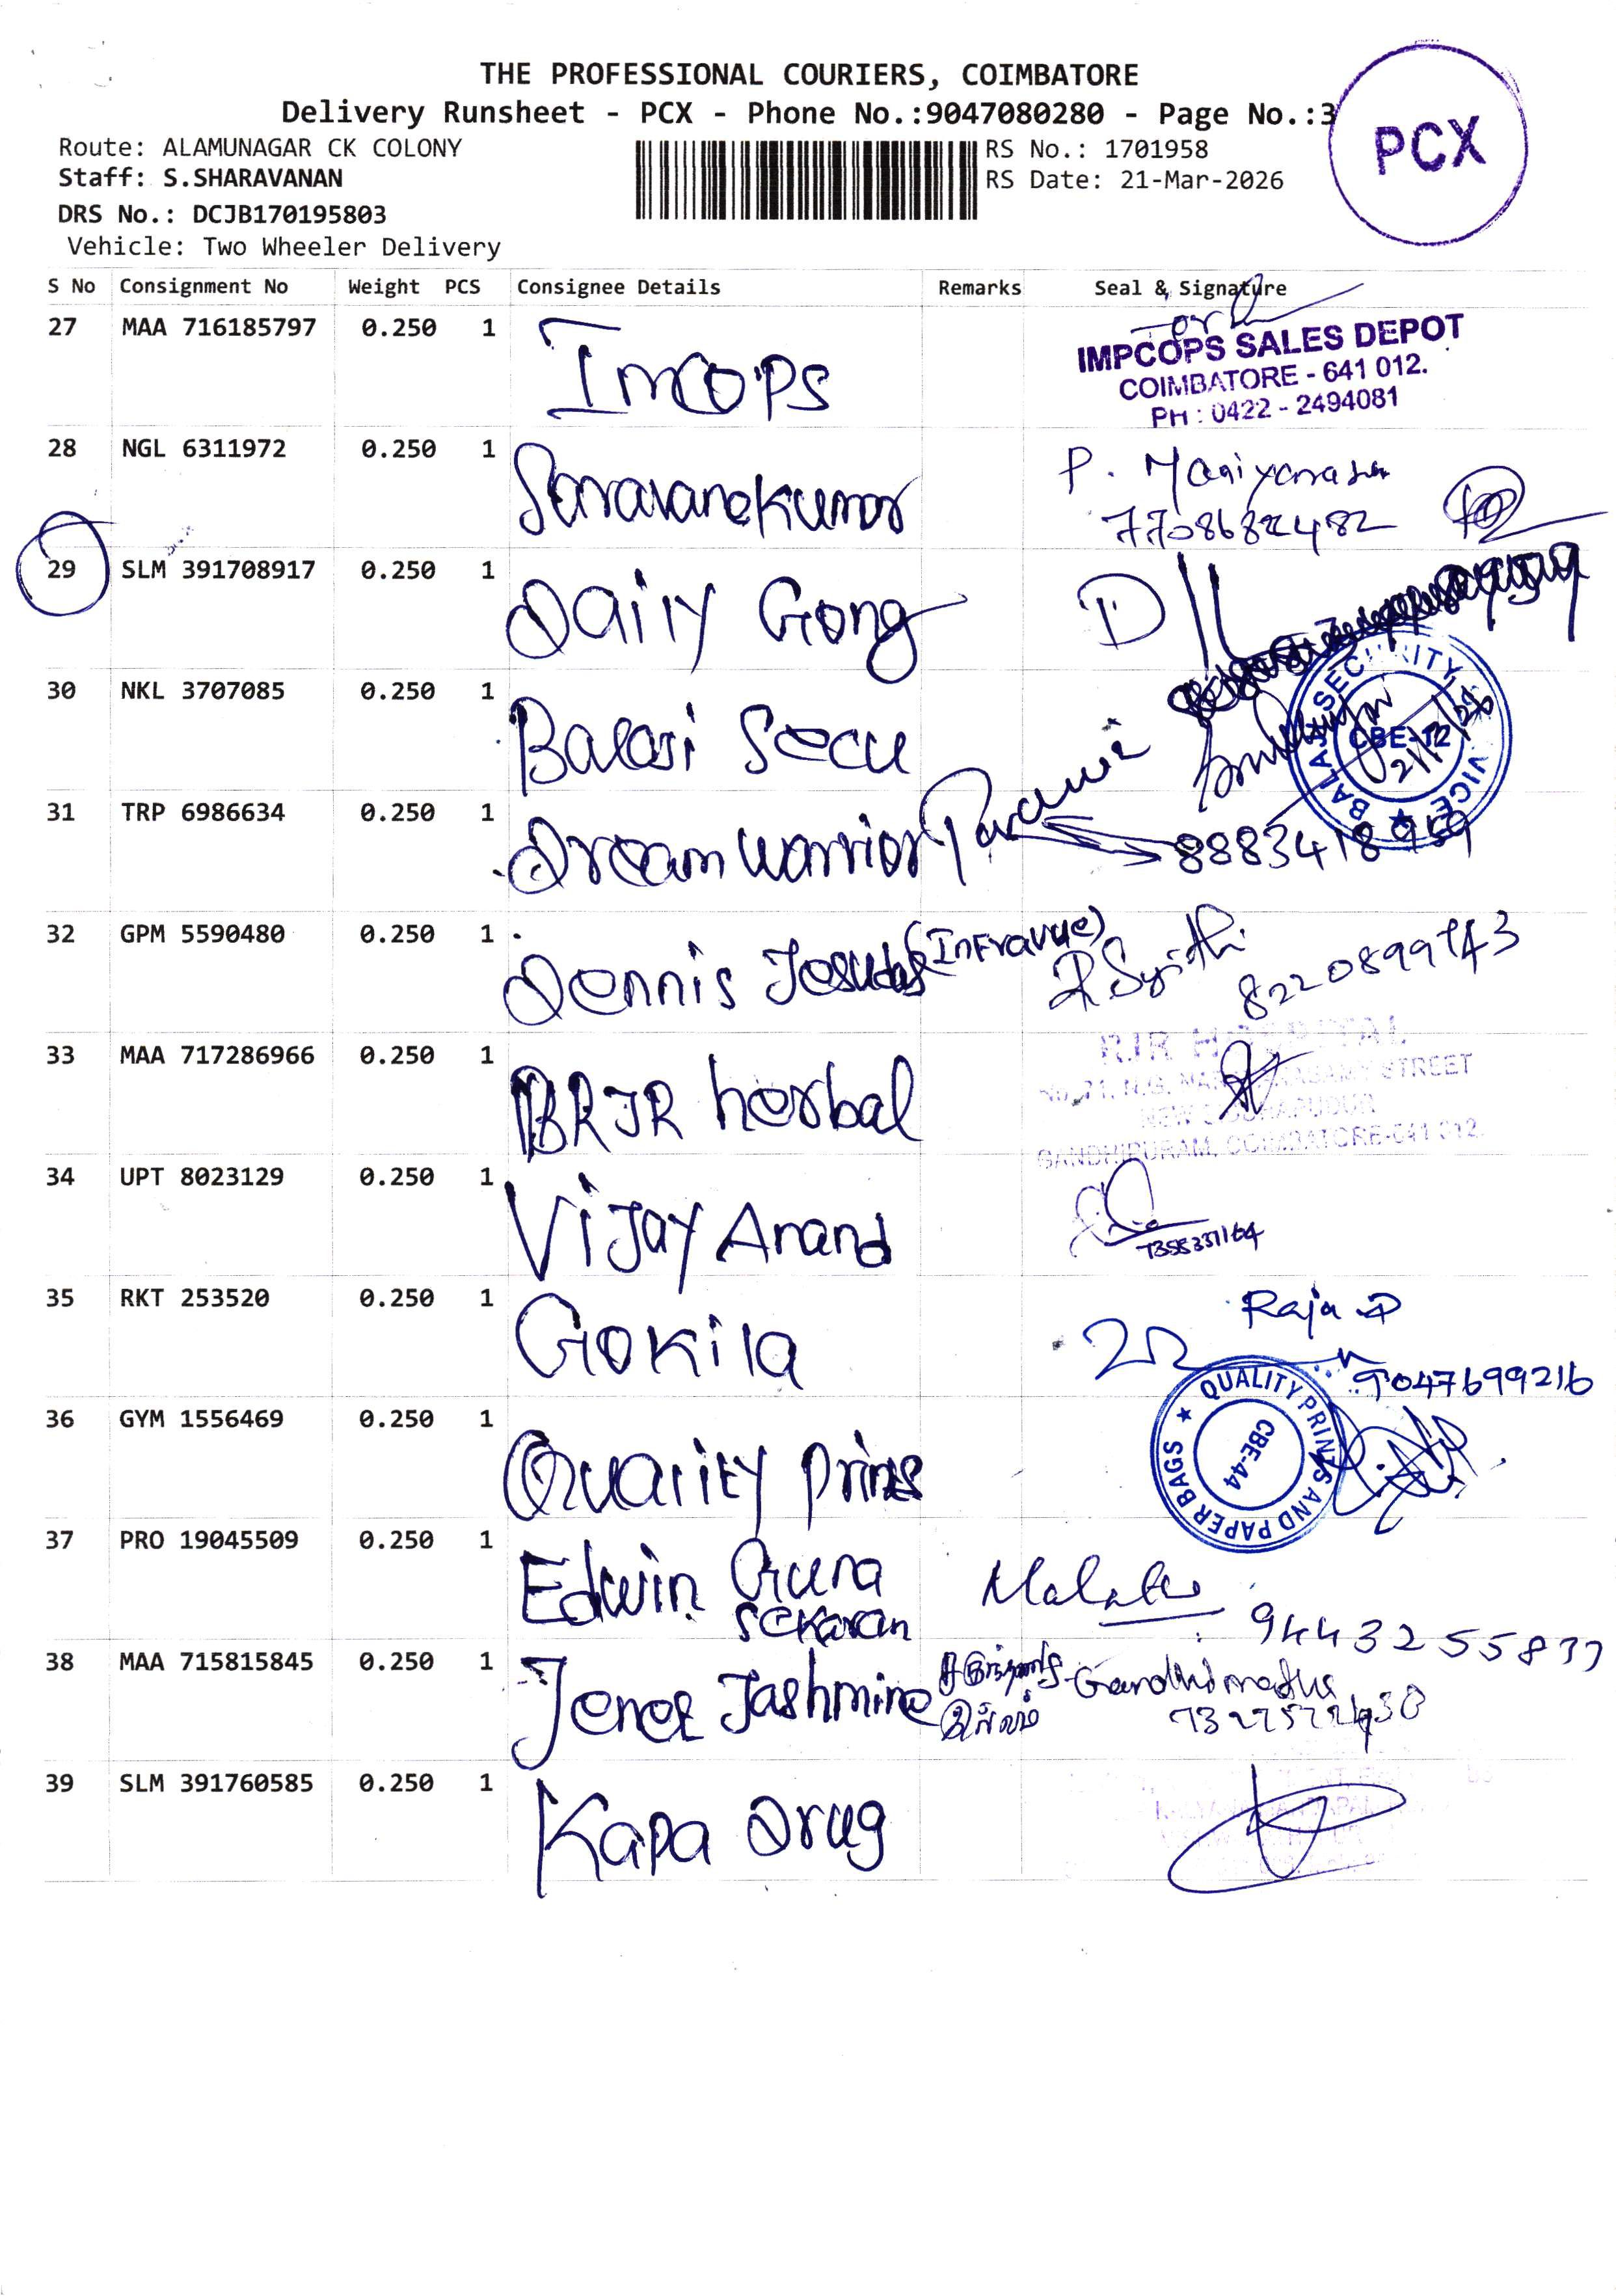 THE PROFESSIONAL COURIERS, COIMBATORE
Delivery Runsheet - PCX - Phone No.:9047080280 - Page No.:3
PCX
Route: ALAMUNAGAR CK COLONY
RS No.: 1701958
Staff: S.SHARAVANAN
RS Date: 21-Mar-2026
DRS No.: DCJB170195803
Vehicle: Two Wheeler Delivery
S No Consignment No Weight PCS Consignee Details Remarks Seal & Signature
27 MAA 716185797 0.250 1 Imcops
For
IMPCOPS SALES DEPOT
COIMBATORE - 641 012.
PH : 0422 - 2494081
28 NGL 6311972 0.250 1 Saravanakumar
P.
29 SLM 391708917 0.250 1 Dairy Gong
D
30 NKL 3707085 0.250 1 Balaji Secu
BALAJI SECURITY SERVICE
CBE-12
31 TRP 6986634 0.250 1 Dream Warrior
8883418959
32 GPM 5590480 0.250 1 Dennis Jesudas (Infravue)
8220899743
33 MAA 717286966 0.250 1 RJR herbal
RJR HOSPITAL
STREET
GANDHIPURAM, COIMBATORE-641 012.
34 UPT 8023129 0.250 1 Vijay Anand
35 RKT 253520 0.250 1 Gokila
Raja
9047699216
36 GYM 1556469 0.250 1 Quality Prints
QUALITY PRINTS AND PAPER BAGS
CBE-44
37 PRO 19045509 0.250 1 Edwin Guna
Sekaran
9443255837
38 MAA 715815845 0.250 1 Jenet Jashmine
இல்லம்
39 SLM 391760585 0.250 1 Kapa Drug